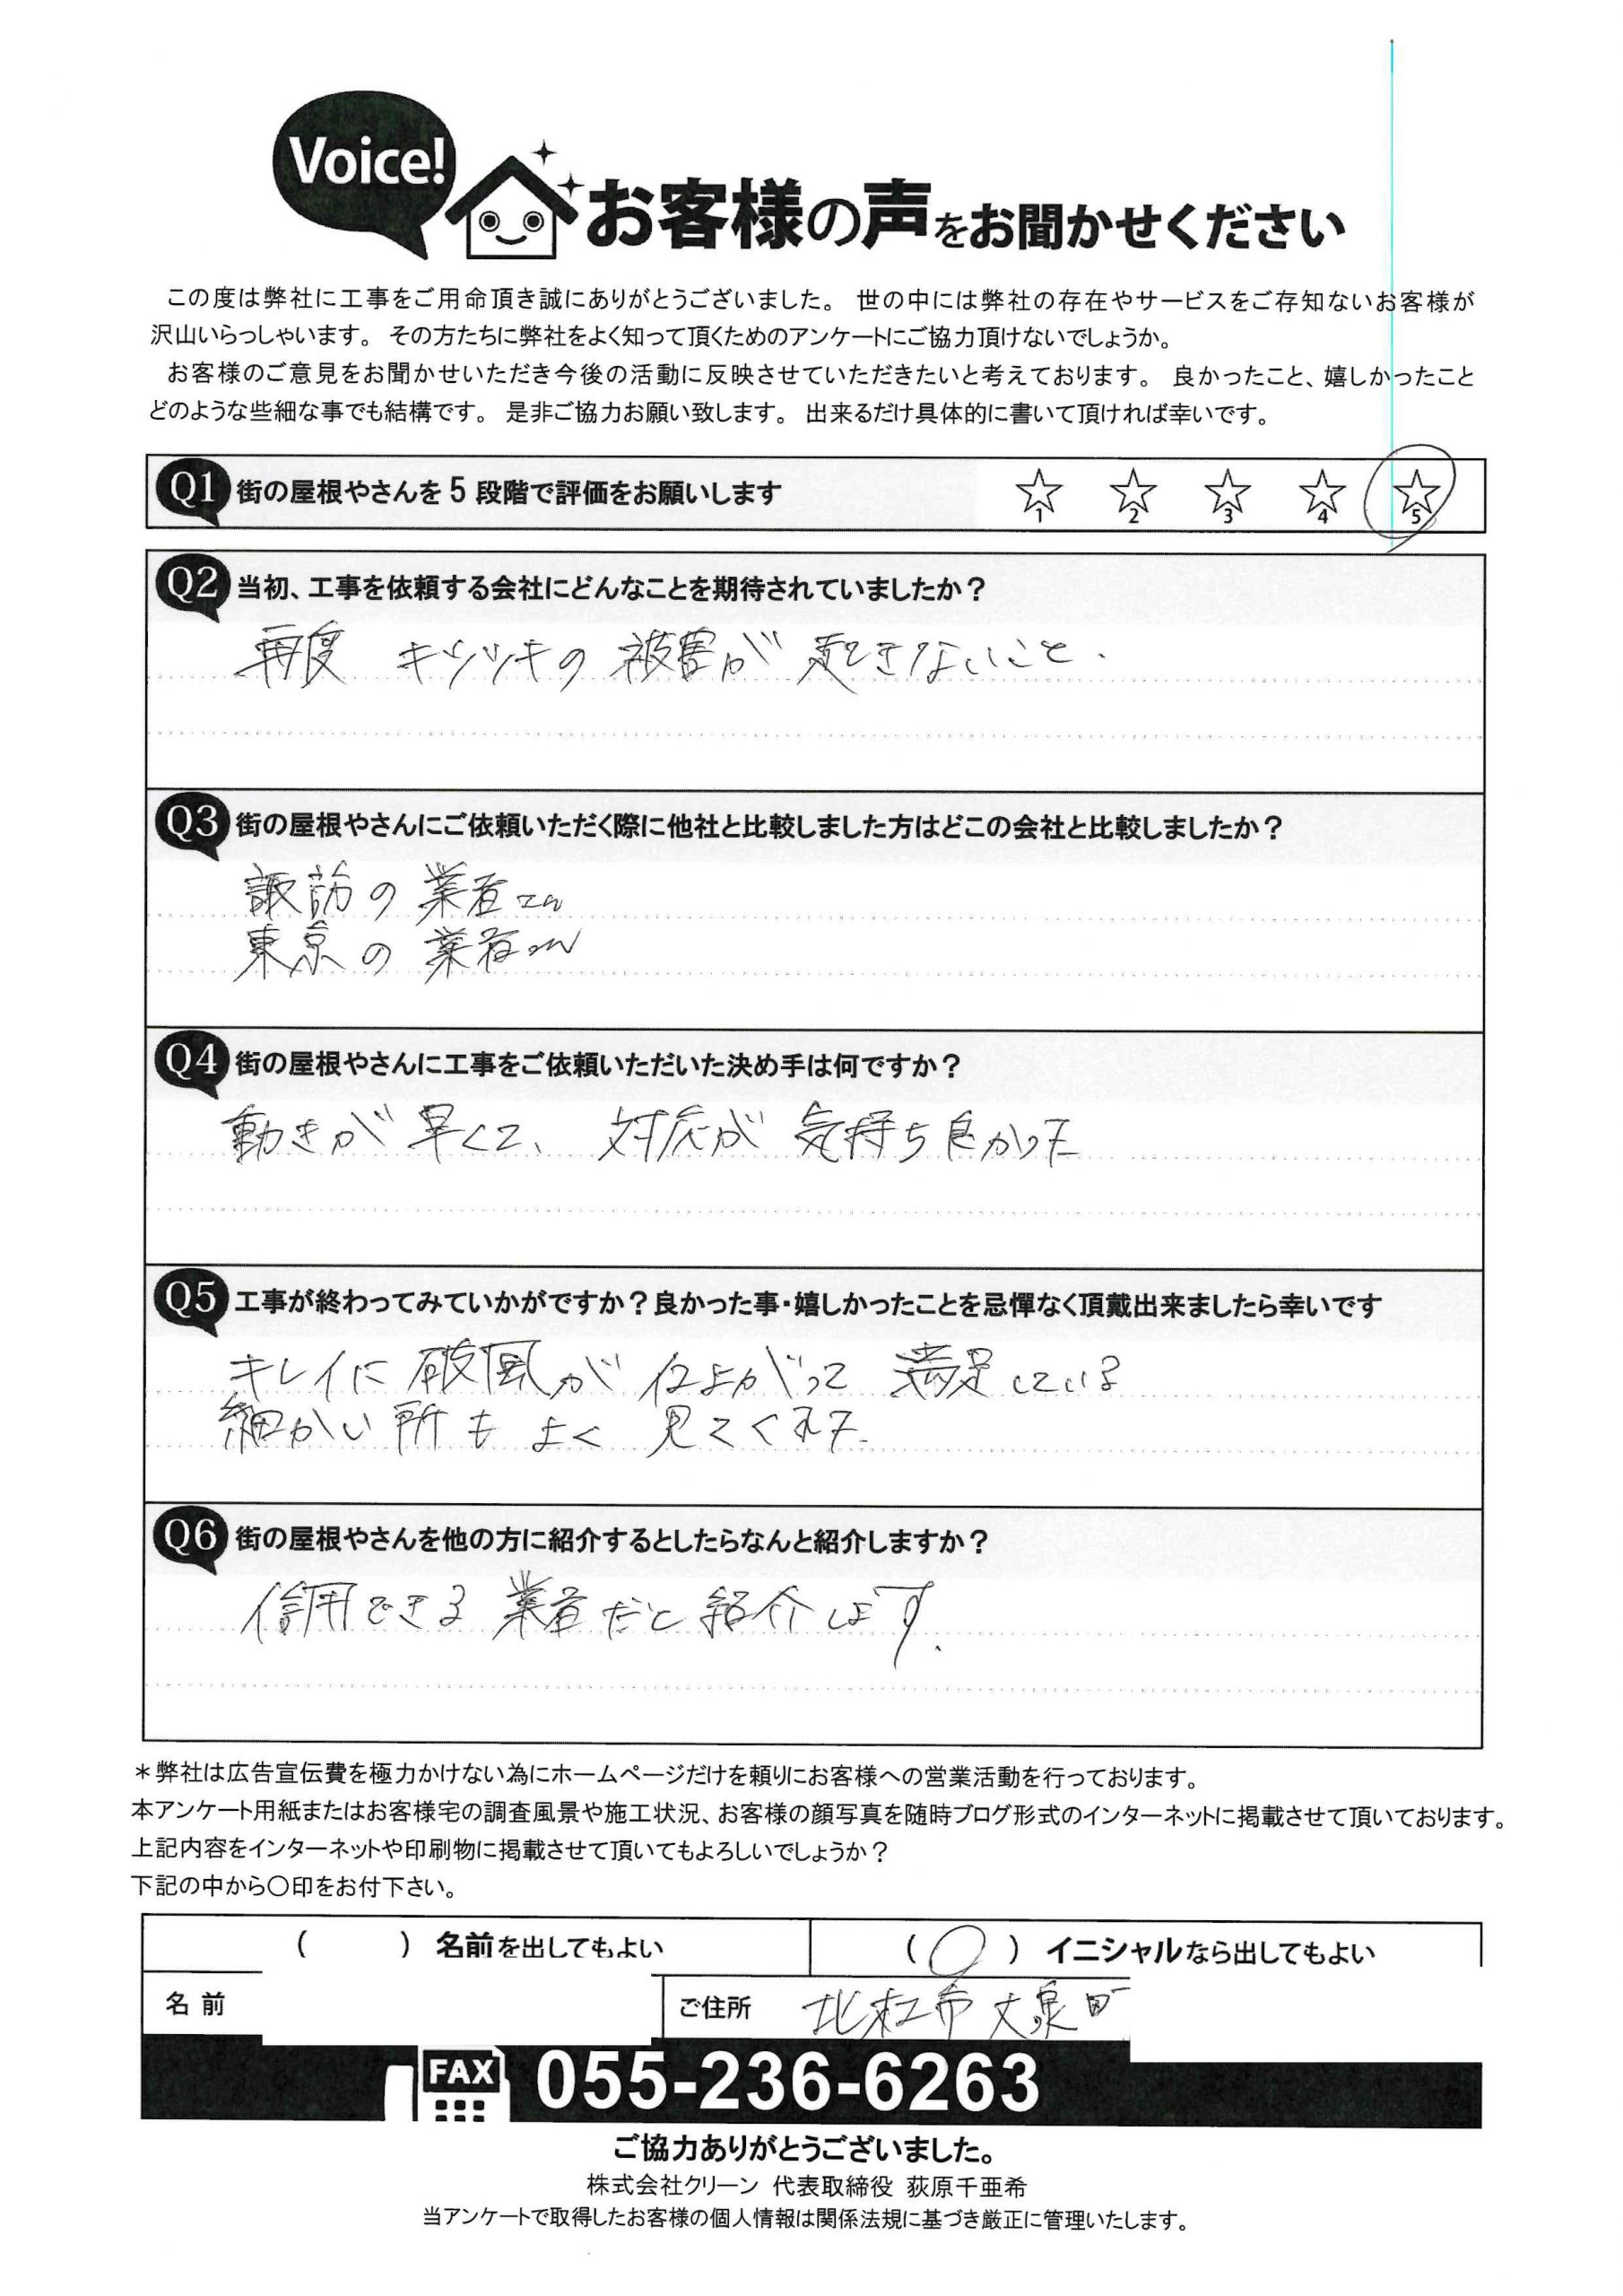 Voice!
お客様の声をお聞かせください
この度は弊社に工事をご用命頂き誠にありがとうございました。 世の中には弊社の存在やサービスをご存知ないお客様が
沢山いらっしゃいます。 その方たちに弊社をよく知って頂くためのアンケートにご協力頂けないでしょうか。
お客様のご意見をお聞かせいただき今後の活動に反映させていただきたいと考えております。 良かったこと、嬉しかったこと
どのような些細な事でも結構です。 是非ご協力お願い致します。 出来るだけ具体的に書いて頂ければ幸いです。
Q1 街の屋根やさんを5段階で評価をお願いします ☆1 ☆2 ☆3 ☆4 ☆5
Q2 当初、工事を依頼する会社にどんなことを期待されていましたか？
再度 キツツキの 被害が 起きないこと.
Q3 街の屋根やさんにご依頼いただく際に他社と比較しました方はどこの会社と比較しましたか？
諏訪の業者さん
東京の業者さん
Q4 街の屋根やさんに工事をご依頼いただいた決め手は何ですか？
動きが早くて、対応が気持ち良かった
Q5 工事が終わってみていかがですか？良かった事・嬉しかったことを忌憚なく頂戴出来ましたら幸いです
キレイに破風が仕上がって満足している
細かい所もよく見てくれた.
Q6 街の屋根やさんを他の方に紹介するとしたらなんと紹介しますか？
信用できる業者だと紹介します.
＊弊社は広告宣伝費を極力かけない為にホームページだけを頼りにお客様への営業活動を行っております。
本アンケート用紙またはお客様宅の調査風景や施工状況、お客様の顔写真を随時ブログ形式のインターネットに掲載させて頂いております。
上記内容をインターネットや印刷物に掲載させて頂いてもよろしいでしょうか？
下記の中から〇印をお付下さい。
（　　）名前を出してもよい （○）イニシャルなら出してもよい
名前 ご住所 北杜市大泉町
FAX 055-236-6263
ご協力ありがとうございました。
株式会社クリーン 代表取締役 荻原千亜希
当アンケートで取得したお客様の個人情報は関係法規に基づき厳正に管理いたします。